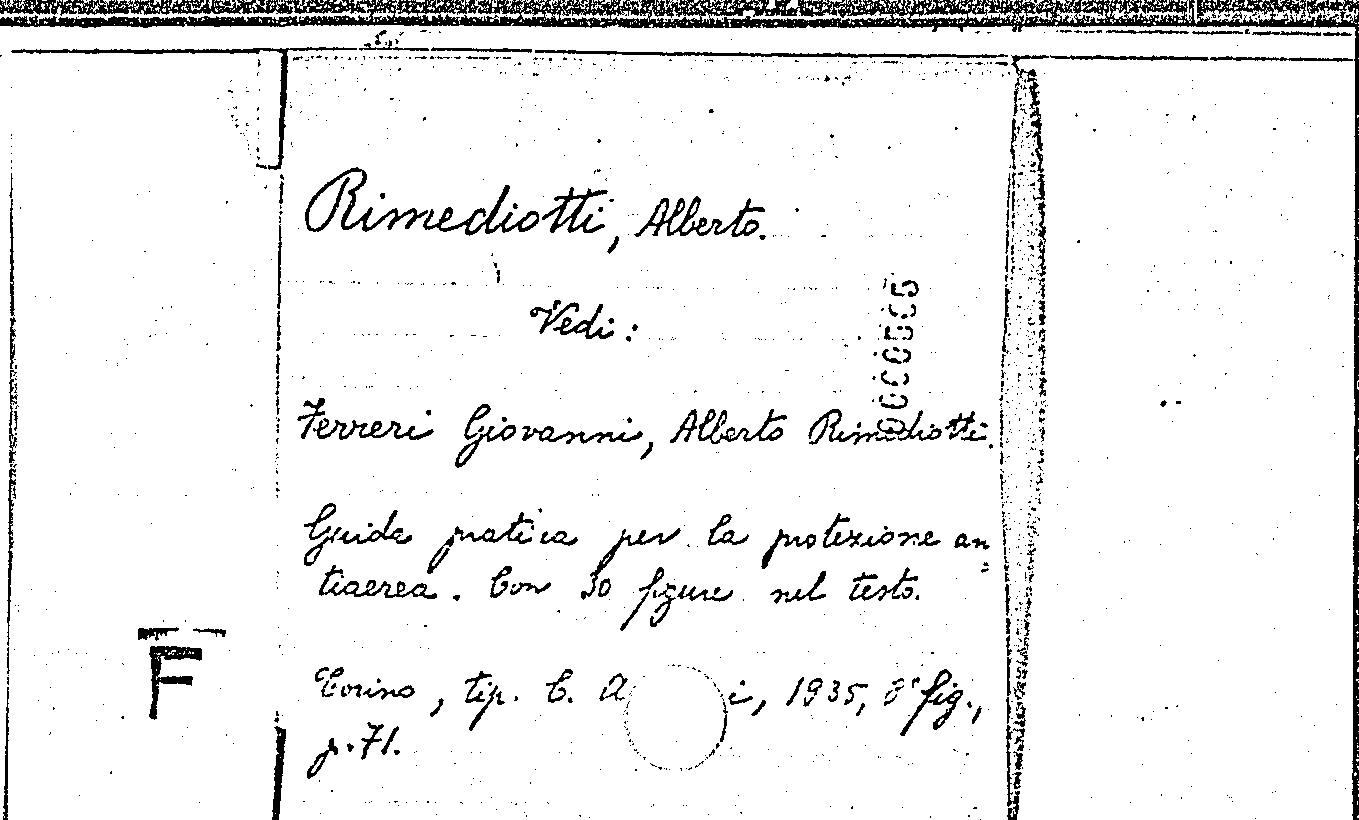 Rimediotti, Alberto.
Vedi:
Ferreri Giovanni, Alberto Rimediotti.
Guida pratica per la protezione an=
tiaerea. Con 30 figure nel testo.
Torino, tip. C. A i, 1935, 8° fig.,
p. 71.
F